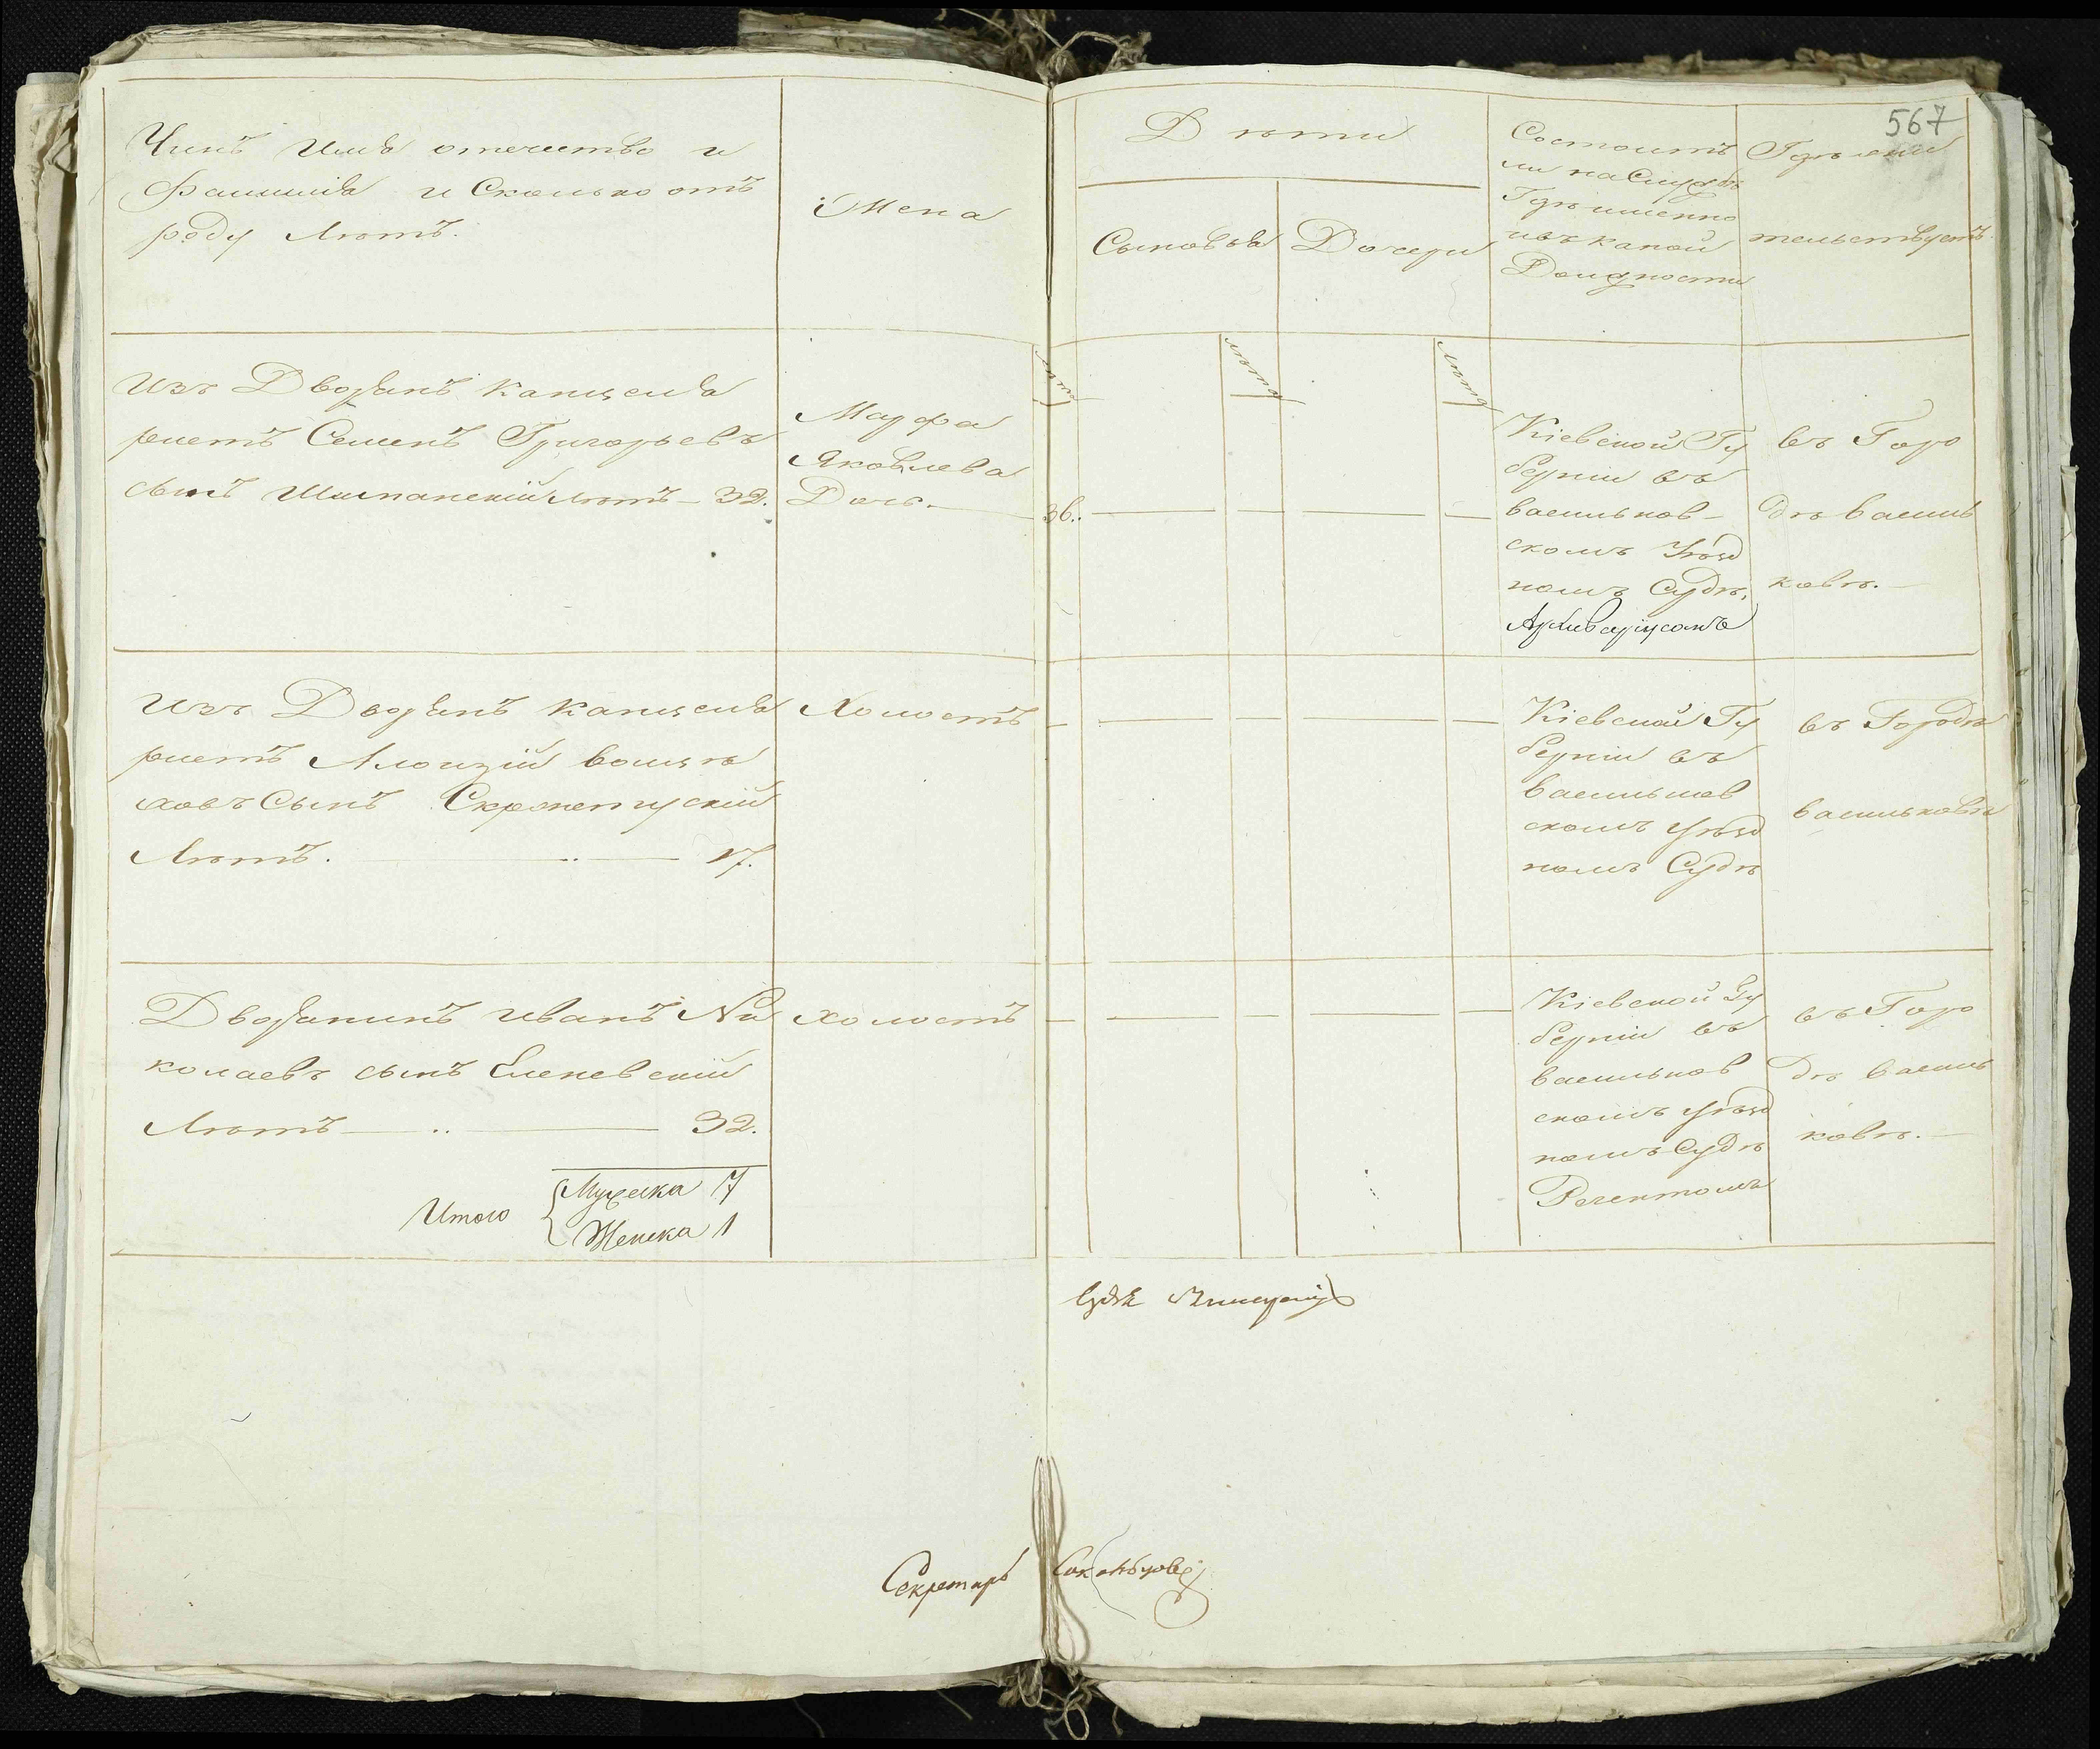 567
Чинъ Имя отечество и
Фамилія и Сколько отъ
роду Лѣтъ.
Жена
Дѣти
Сыновья
Дочери
Состоитъ
ли на Службѣ
Гдѣ именно
ивъ какой
Должности
Гдѣ жи
тельствуетъ
Лѣта
Лѣта
Лѣта
Изъ Дворянъ Канцеля
ристъ Семенъ Григорьевъ
сынъ Шимпанскій Лѣтъ - 32.
Марфа
Яковлева
Дочь.
36.
Кіевской Гу
берніи въ
васильков-
скомъ Уѣзд
номъ Судѣ,
Архиваріусомъ
въ Горо
дѣ василь
ковѣ.
Изъ Дворянъ Канцеля
ристъ Алоизій
сынъ Скржетускій
Лѣтъ. 17.
Холостъ
Кіевской Гу
берніи въ
васильков
скомъ Уѣзд
номъ Судѣ
въ Городѣ
васильковѣ
Дворянинъ иванъ Ни
колаевъ сынъ Еленевскій
Лѣтъ 32.
холостъ
Кіевской Гу
берніи въ
васильков
скомъ Уѣзд
номъ Судѣ
Регентомъ
въ Горо
дѣ василь
ковѣ.
Итого
Мужеска 7
Женска 1
Секретарь